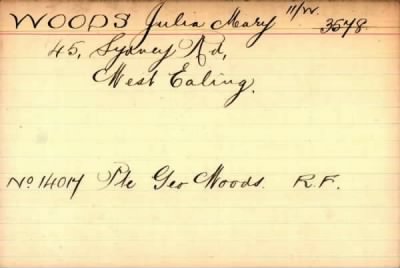 WOODS Julia Mary 11/W. 3578.
45, Sydney Rd,
West Ealing.
No 14017 Pte Geo Woods. R.F.